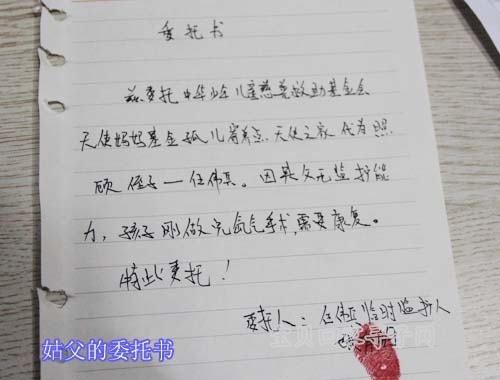 委托书
兹委托中华少年儿童慈善救助基金会
天使妈妈基金孤儿寄养点天使之家代为照
顾侄子——任伟其。因其父无监护能
力，孩子刚做完疝气手术，需要康复。
特此委托！
委托人：任伟其临时监护人
姑父的委托书
宝贝回家寻子网